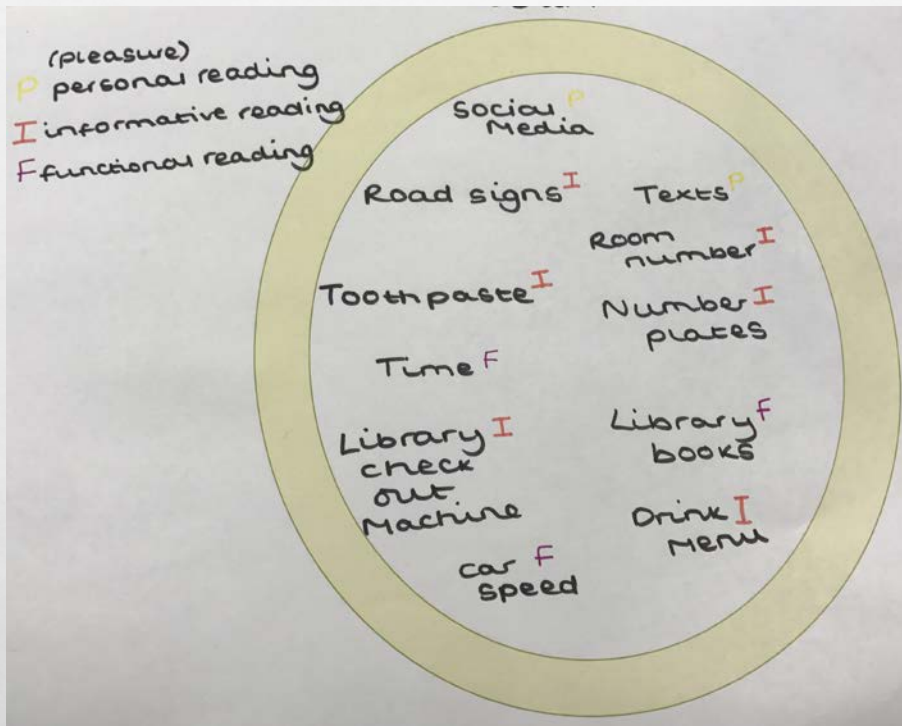 (pleasure)
P personal reading
I informative reading
F functional reading
Social P
Media
Road signs I
Texts P
Room
number I
Toothpaste I
Number I
plates
Time F
Library I
check
out
Machine
Library F
books
Drink I
Menu
car F
speed